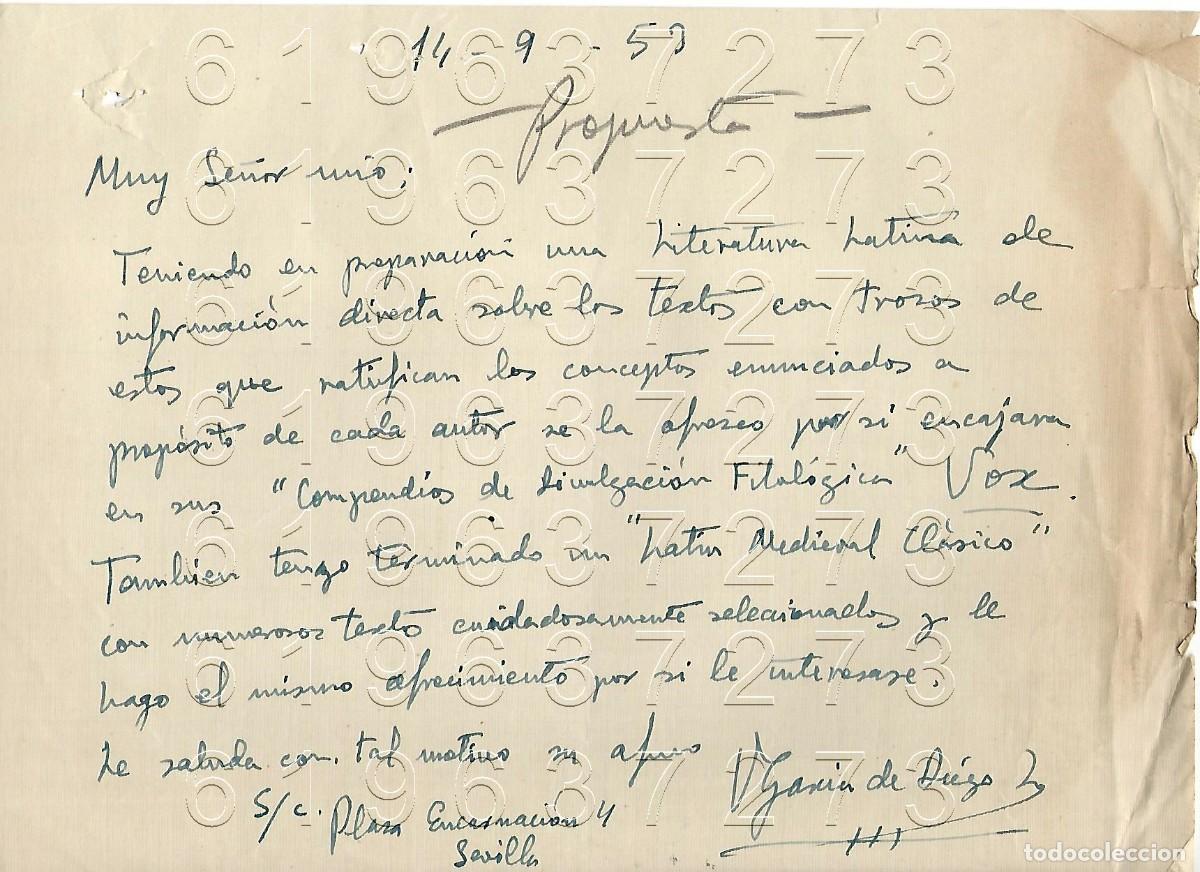 14 - 9 - 53
— Propuesta —
Muy Señor mío;
Teniendo en preparación una Literatura Latina de
información directa sobre los textos con trozos de
estos que ratifican los conceptos enunciados a
propósito de cada autor se la ofrezco por si encajara
en sus "Compendios de Divulgación Filológica" Vox.
Tambien tengo terminado un "Latin Medieval Clásico"
con numerosos textos cuidadosamente seleccionados y le
hago el mismo ofrecimiento por si le interesase.
Le saluda con tal motivo su afmo
V García de Diego L
S/c. Plaza Encarnación 4
Sevilla
619637273
619637273
619637273
619637273
619637273
619637273
619637273
todocoleccion